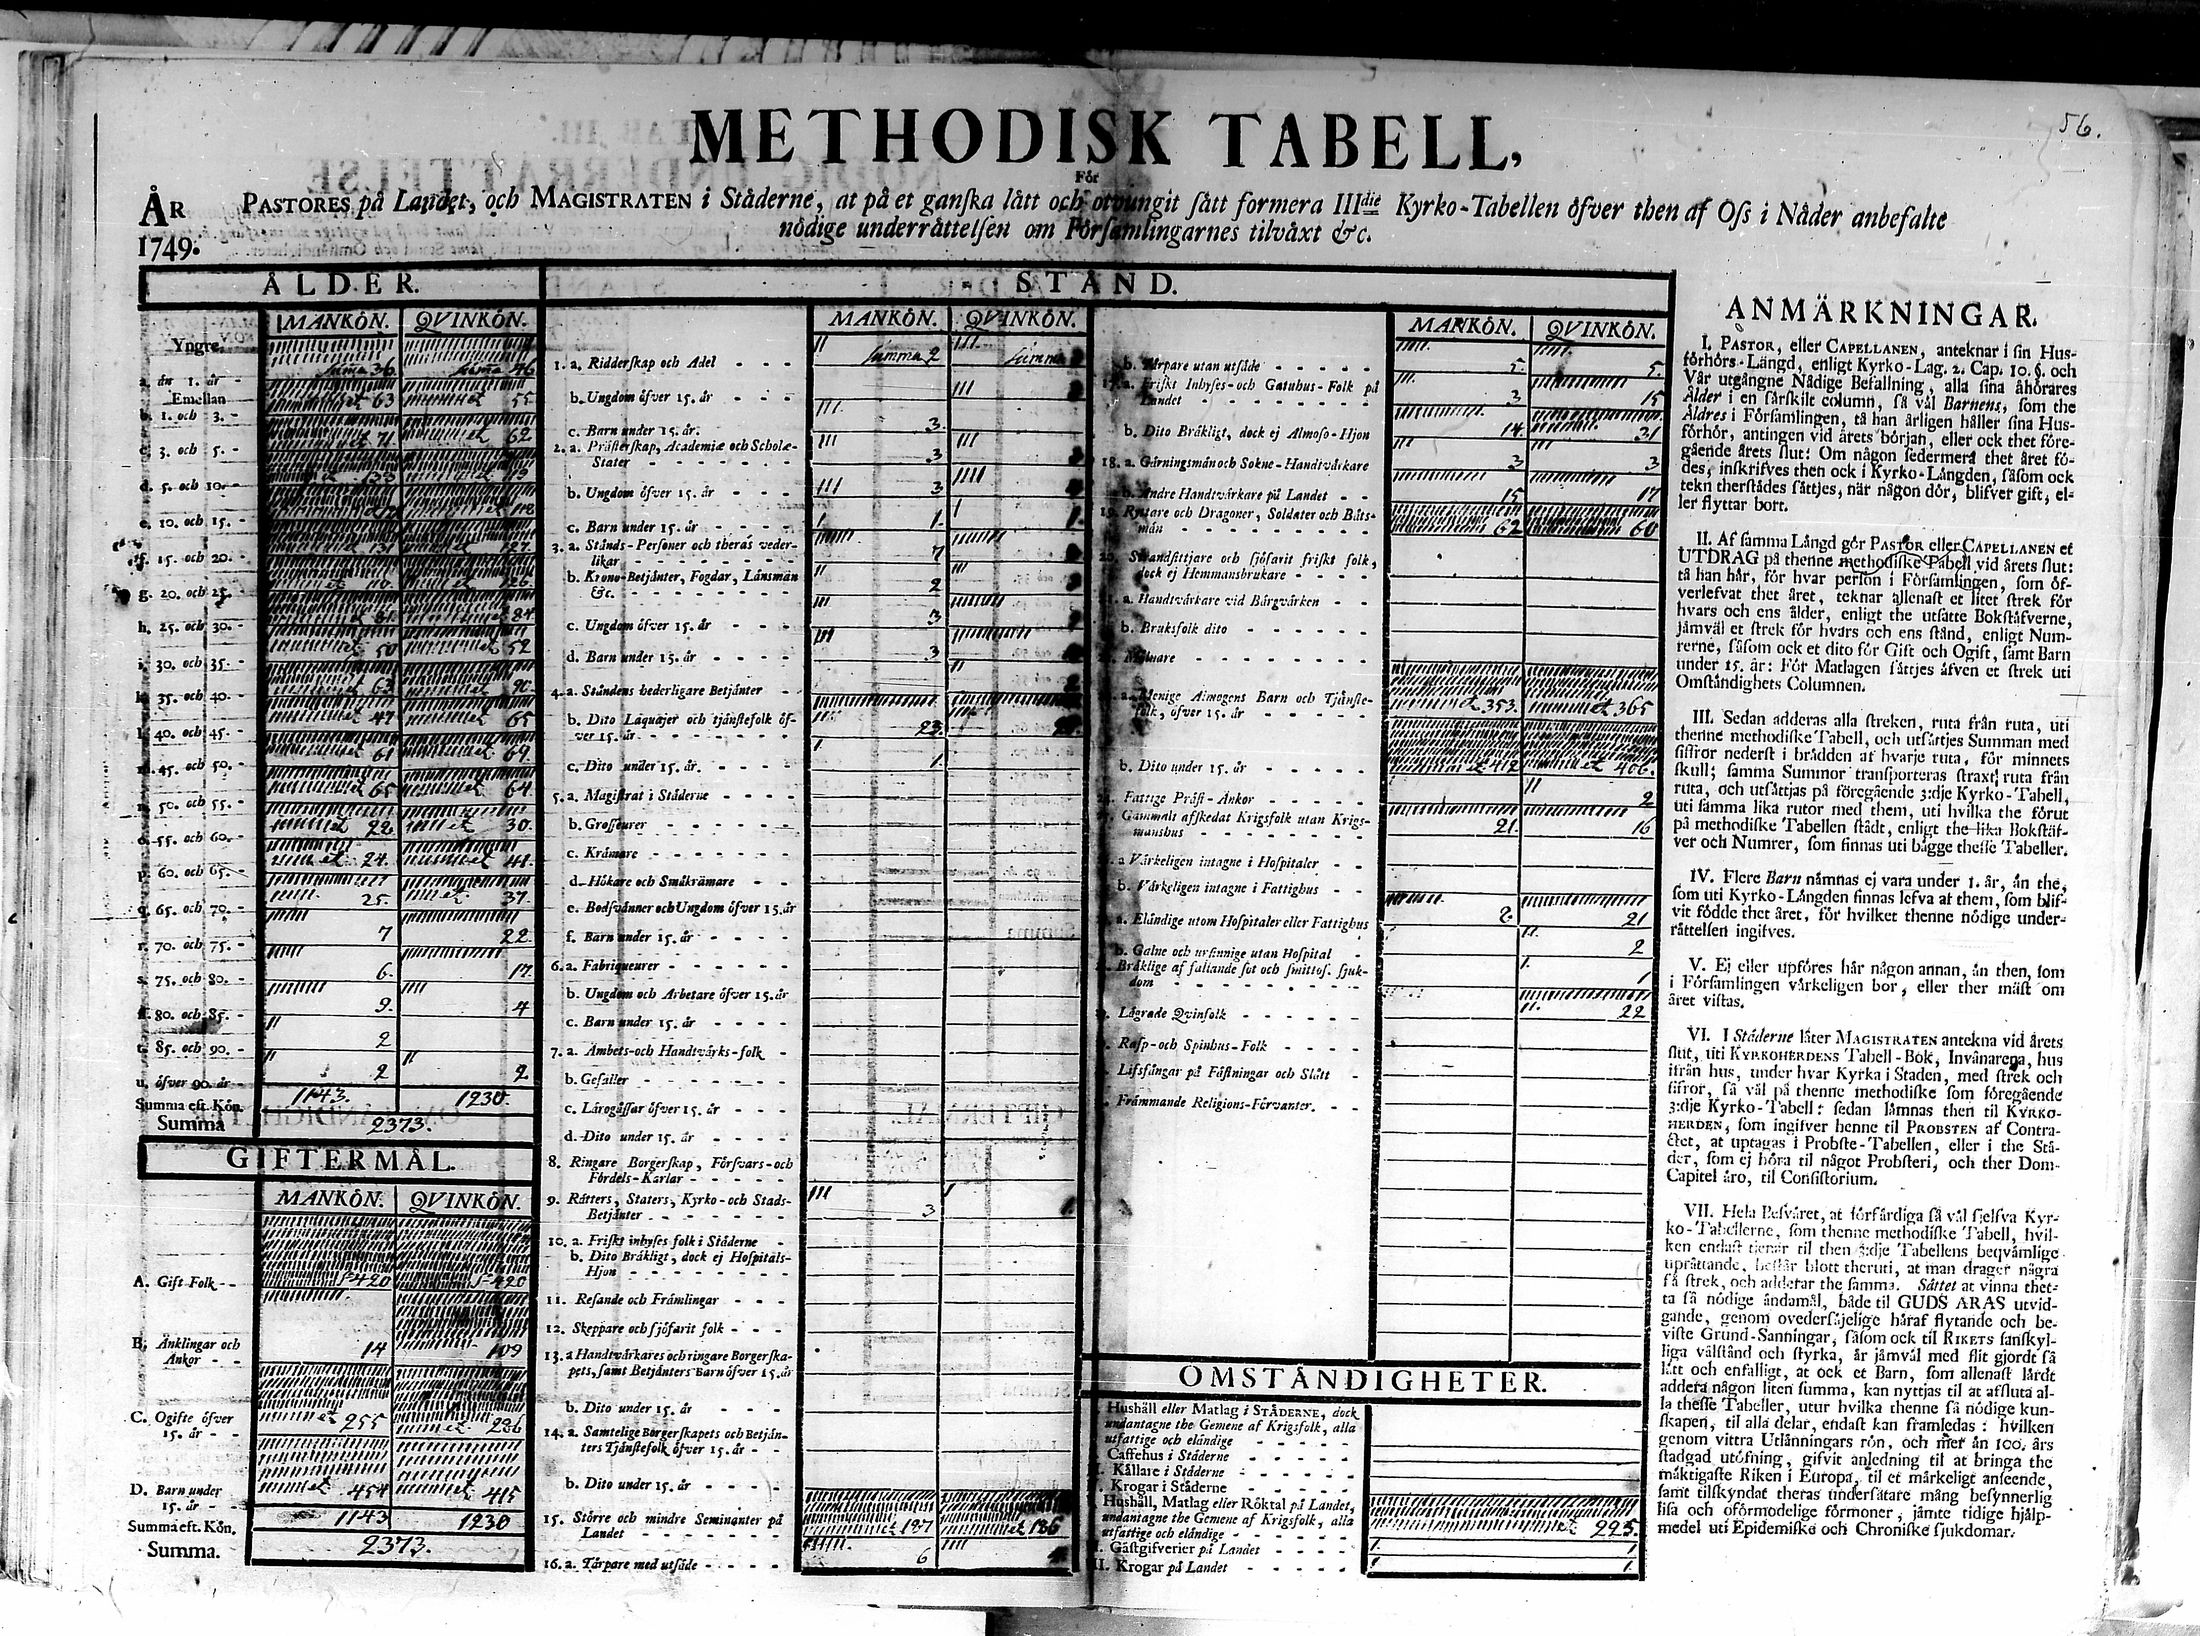 56.
METHODISK TABELL,
För
ÅR
1749.
PASTORES på Landet, och MAGISTRATEN i Städerne, at på et ganska lätt och otvungit sätt formera IIIdie Kyrko-Tabellen öfver then af Oss i Nåder anbefalte
nödige underrättelsen om Församlingarnes tilväxt &c.
ÅLDER.
MANKÖN. QVINKÖN.
Yngre
a. än 1. år - 36 46
Emellan
b. 1. och 3. - 63 55
c. 3. och 5. - 71 62
d. 5. och 10. - 133
e. 10. och 15. - 118
f. 15. och 20. - 131 127
g. 20. och 25. 126
h. 25. och 30. - 84
i. 30. och 35. - 50 52
k. 35. och 40. - 63 90
l. 40. och 45. - 47 65
m. 45. och 50. - 61 69
n. 50. och 55. - 65 64
o. 55. och 60. - 22 30.
p. 60. och 65. - 24. 41.
q. 65. och 70. - 25. 37
r. 70. och 75. - 7 22
s. 75. och 80. - 6. 17.
ſ. 80. och 85. - 9. 4
t. 85. och 90. - 2
u. öfver 90. år - 2 2
Summa eft. Kön. 1143. 1230.
Summa 2373.
GIFTERMÅL.
MANKÖN. QVINKÖN.
A. Gift Folk - - S 420 S 420
B. Änklingar och
Änkor - - 14 109
C. Ogifte öfver
15. år - - 255 286
D. Barn under
15. år - 454 415
Summa eft. Kön. 1143 1230
Summa. 2373.
STÅND.
MANKÖN. QVINKÖN.
1. a. Ridderskap och Adel - - - Summa 2 Summa
b. Ungdom öfver 15. år - - -
c. Barn under 15. år. 3.
2. a. Prästerskap, Academiæ och Scholæ-
Stater - - - - 3
b. Ungdom öfver 15. år - - - 3
c. Barn under 15. år - - - 1. 1.
3. a. Stånds-Personer och theras veder-
likar - - - - 7
b. Krono-Betjänter, Fogdar, Länsmän
&c. - - - - 2
c. Ungdom öfver 15. år - - - 3
d. Barn under 15. år - - - 3
4. a. Ståndens hederligare Betjänter -
b. Dito Laquajer och tjänstefolk öf-
ver 15. år - - - - 23.
c. Dito under 15. år. - - - 1.
5. a. Magistrat i Städerne - - -
b. Grosseurer - - - -
c. Krämare - - - -
d. Hökare och Småkrämare - -
e. Bodsvänner och Ungdom öfver 15. år
f. Barn under 15. år - - -
6. a. Fabriqueurer - - - -
b. Ungdom och Arbetare öfver 15. år
c. Barn under 15. år - - -
7. a. Ämbets-och Handtvärks-folk -
b. Gesäller - - - -
c. Lärogåssar öfver 15. år - - -
d. Dito under 15. år - - -
8. Ringare Borgerskap, Försvars-och
Fördels-Karlar - - - -
9. Rätters, Staters, Kyrko-och Stads-
Betjänter - - - - 3
10. a. Friskt inhyses folk i Städerne -
b. Dito Bräkligt, dock ej Hospitals-
Hjon - - - -
11. Resande och Främlingar - - -
12. Skeppare och sjöfarit folk - - -
13. a Handtvärkares och ringare Borgerska-
pets, samt Betjänters Barn öfver 15. år
b. Dito under 15. år - - -
14. a. Samtelige Borgerskapets och Betjän-
ters Tjänstefolk öfver 15. år - -
b. Dito under 15. år - - -
15. Större och mindre Seminanter på
Landet - - - - 187 186
16. a. Tårpare med utsäde - - - - 6
MANKÖN. QVINKÖN.
b. Tårpare utan utsäde - - - - 5. 5.
17. a. Friskt Inhyses-och Gatuhus-Folk på
Landet - - - - 3 15
b. Dito Bräkligt, dock ej Almoso-Hjon 14. 31
18. a. Gärningsmän och Sokne-Handtvärkare 3 3
b. Andre Handtvärkare på Landet - - 15 17
19. Ryttare och Dragoner, Soldater och Båts-
män - - - - 62 60
20. Strandsittjare och sjöfarit friskt folk,
dock ej Hemmansbrukare - - - -
a. Handtvärkare vid Bärgvärken - -
b. Bruksfolk dito - - - -
Mölnare - - - -
a. Menige Almogens Barn och Tjänste-
folk, öfver 15. år - - - - 353. 365
b. Dito under 15. år - - - - 412 406.
Fattige Präst-Änkor - - - - 2
Gammalt afskedat Krigsfolk utan Krigs-
manshus - - - - 21. 16
a Värkeligen intagne i Hospitaler - -
b. Värkeligen intagne i Fattighus - -
a. Eländige utom Hospitaler eller Fattighus 21
b. Galne och ursinnige utan Hospital - 2
Bräklige af fallande sot och smittos. sjuk-
dom - - - - 1
Lägrade Qvinfolk - - - - 22
Rasp-och Spinhus-Folk - - - -
Lifsfångar på Fästningar och Slått -
Främmande Religions-Förvanter. - -
OMSTÄNDIGHETER.
Hushåll eller Matlag i STÄDERNE, dock
undantagne the Gemene af Krigsfolk, alla
utfattige och eländige - - - -
Caffehus i Städerne - - - -
Källare i Städerne - - - -
Krogar i Städerne - - - -
Hushåll, Matlag eller Röktal på Landet,
undantagne the Gemene af Krigsfolk, alla
utfattige och eländige - - - - 225.
Gästgifverier på Landet - - - - 1
II. Krogar på Landet - - - - 1.
ANMÄRKNINGAR.
I. PASTOR, eller CAPELLANEN, anteknar i sin Hus-
förhörs-Längd, enligt Kyrko-Lag. 2. Cap. 10. §. och
Vår utgångne Nådige Befallning, alla sina åhörares
Ålder i en särskilt column, så väl Barnens, som the
Äldres i Församlingen, tå han årligen håller sina Hus-
förhör, antingen vid årets början, eller ock thet före-
gående årets slut: Om någon sedermera thet året fö-
des, inskrifves then ock i Kyrko-Längden, såsom ock
tekn therstädes sättjes, när någon dör, blifver gift, el-
ler flyttar bort.
II. Af samma Längd gör PASTOR eller CAPELLANEN et
UTDRAG på thenne methodiske Tabell vid årets slut:
tå han här, för hvar person i Församlingen, som öf-
verlefvat thet året, teknar allenast et litet strek för
hvars och ens ålder, enligt the utsatte Bokstäfverne,
jämväl et strek för hvars och ens stånd, enligt Num-
rerne, såsom ock et dito för Gift och Ogift, samt Barn
under 15. år: För Matlagen sättjes äfven et strek uti
Omständighets Columnen.
III. Sedan adderas alla streken, ruta från ruta, uti
thenne methodiske Tabell, och utsättjes Summan med
siffror nederst i brädden af hvarje ruta, för minnets
skull; samma Summor transporteras straxt ruta från
ruta, och utsättjas på föregående 3:dje Kyrko-Tabell,
uti samma lika rutor med them, uti hvilka the förut
på methodiske Tabellen stådt, enligt the lika Bokstäf-
ver och Numrer, som finnas uti bägge thesse Tabeller.
IV. Flere Barn nämnas ej vara under 1. år, än the,
som uti Kyrko-Längden finnas lefva at them, som blif-
vit födde thet året, för hvilket thenne nödige under-
rättelsen ingifves.
V. Ej eller upföres här någon annan, än then, som
i Församlingen värkeligen bor, eller ther mäst om
året vistas.
VI. I Städerne låter MAGISTRATEN antekna vid årets
slut, uti KYRKOHERDENS Tabell-Bok, Invånarena, hus
ifrån hus, under hvar Kyrka i Staden, med strek och
sifror, så väl på thenne methodiske som föregående
3:dje Kyrko-Tabell: sedan lämnas then til KYRKO-
HERDEN, som ingifver henne til PROBSTEN af Contra-
ctet, at uptagas i Probste-Tabellen, eller i the Stä-
der, som ej höra til något Probsteri, och ther Dom-
Capitel äro, til Consistorium.
VII. Hela Besväret, at förfärdiga så väl sjelfva Kyr-
ko-Tabellerne, som thenne methodiske Tabell, hvil-
ken endast tienar til then 3:dje Tabellens beqvämlige
uprättande, består blott theruti, at man drager några
få strek, och adderar the samma. Sättet at vinna thet-
ta så nödige ändamål, både til GUDS ÄRAS utvid-
gande, genom ovedersäjelige häraf flytande och be-
viste Grund-Sanningar, såsom ock til RIKETS sanskyl-
liga välstånd och styrka, är jämväl med flit gjordt så
lätt och enfalligt, at ock et Barn, som allenast lärdt
addera någon liten summa, kan nyttjas til at afsluta al-
la thesse Tabeller, utur hvilka thenne så nödige kun-
skapen, til alla delar, endast kan framledas: hvilken
genom vittra Utlänningars rön, och mer än 100. års
stadgad utöfning, gifvit anledning til at bringa the
mäktigaste Riken i Europa, til et märkeligt anseende,
samt tilskyndat theras undersåtare mång besynnerlig
lisa och oförmodelige förmoner, jämte tidige hjälp-
medel uti Epidemiske och Chroniske sjukdomar.